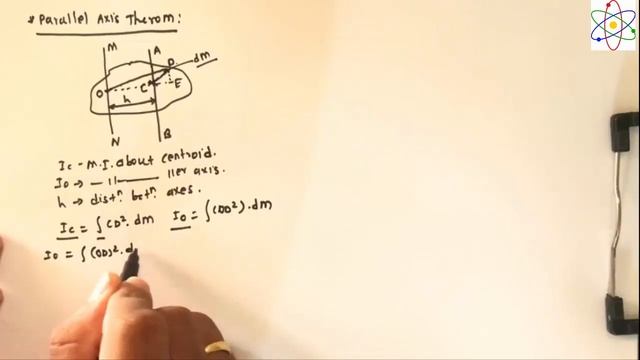 * Parallel Axis Therom:
M A
D dM
O C E
h
N B
Ic - M.I. about centroid.
Io → —11— 11er axis.
h → distⁿ. betⁿ. axes.
Ic = ∫CD². dM Io = ∫(OD²). dM
Io = ∫(OD)². d